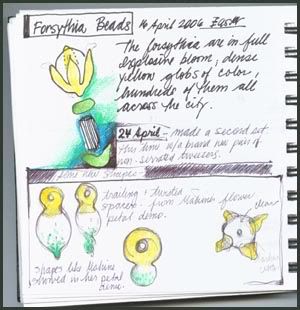 Forsythia Beads 16 April 2006
The forsythia are in full
explosive bloom; dense
yellow globs of color,
hundreds of them all
across the city.
24 April - made a second set.
this time w/a brand new pair of
non-serrated tweezers.
some new shapes -
trailing + twisted
spacers - from flower
petal demo.
clear
shapes like
showed in her petal
demo.